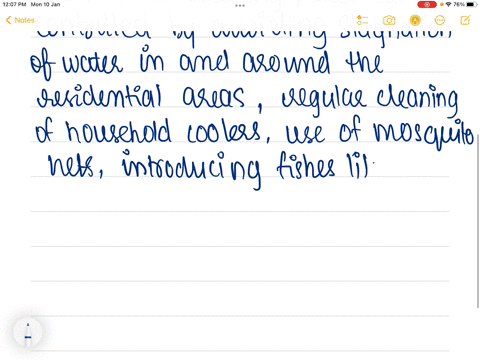 12:07 PM Mon 10 Jan
76%
Notes
controlled by avoiding stagnation
of water in and around the
residential areas, regular cleaning
of household coolers, use of mosquito
nets, introducing fishes li